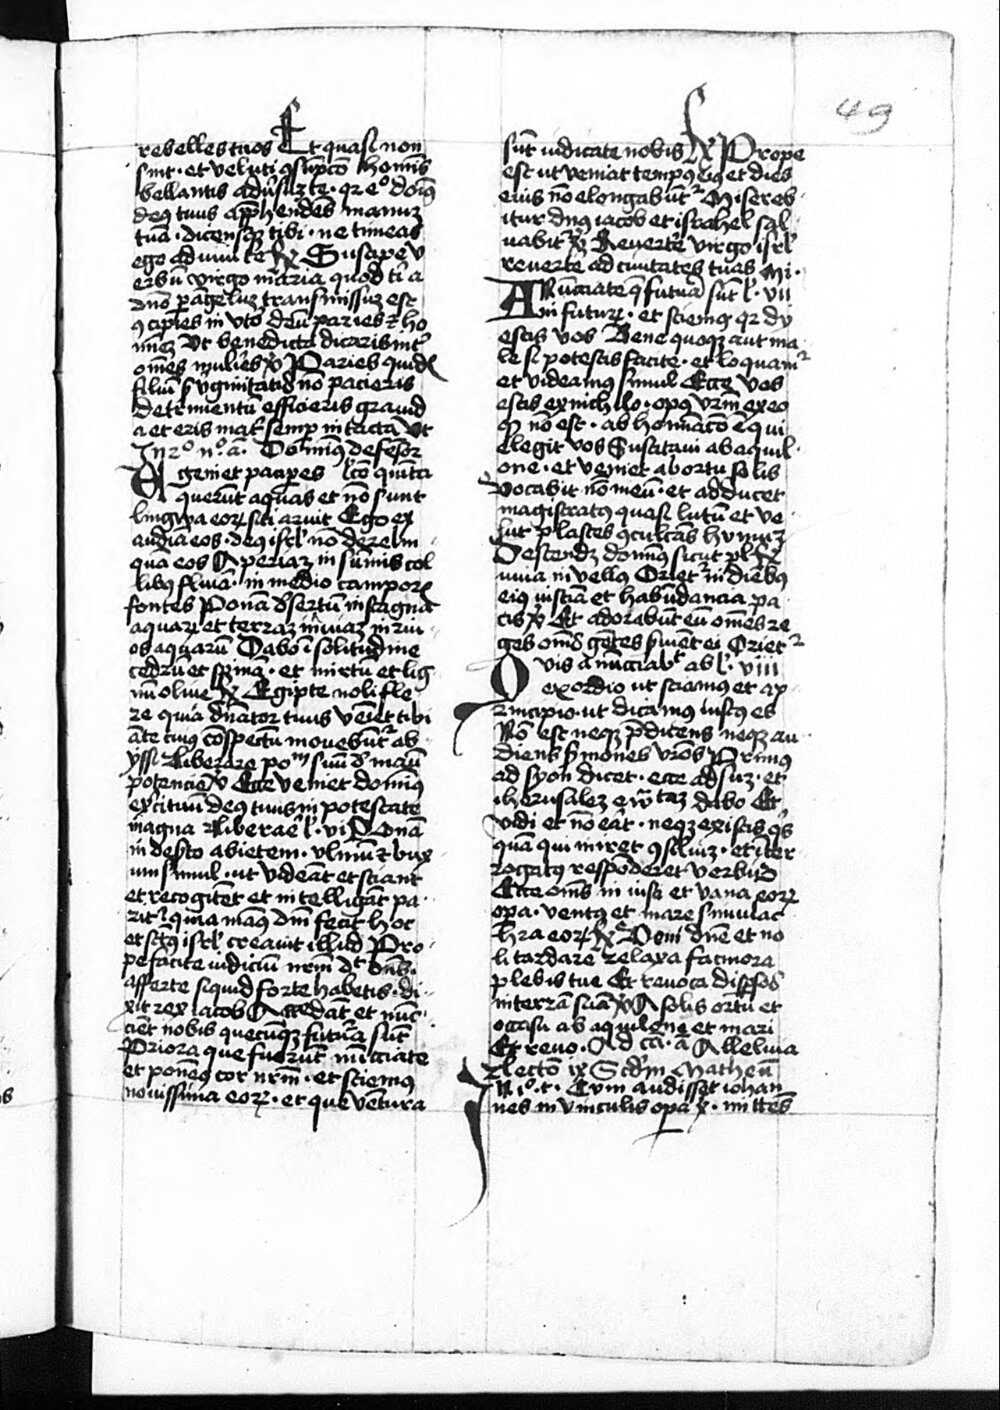 49
rebelles tuos Et quasi non
sint · et veluti ꝯsūpcō hominis
bellantis adūsuz te · qr eᵒ doīꝰ
deꝰ tuus app̄hendēs manuz
tuā · dicensqꝫ tibi · ne timeas
ego adiuui te ℟ Suscipe v
erbū virgo maria quod ti a
dnō p angeluz transmissuz est
ꝯcipies in vtō deū paries ⁊ ho
minez Ut benedicta dicaris int̄
om̄es mulieˢ ℣ Paries quidē
filiū s vginitatis nō pacieris
detrimentū efficieris grauid
a et eris mat̄ semp intacta Ut
Dominꝰ defēsor
Egeni et paupes lcō quīta
querūt aquas et nō sunt
lingwa eoꝝ siti aruit Ego ex
audiā eos · deꝰ isrl̄ nō derelin
quā eos Aperiaz in sūmis col
libꝰ fluuiā · in medio campoꝝ
fontes Ponā d̄sertū in stagna
aquaꝝ et terraz inuiaz in riu
os aquarū Dabo ī solitudine
cedrū et spinā · et mirtū et lig
nū oliue ℟ Egipte noli fle
re quia dn̄ator tuus veīet tibi
āte cuiꝰ cōspectū mouebūt̄ ab
yssi Liberare poᵐ suū d̄ manu
potencie ℣ Ecce veniet dominꝰ
exercituū deꝰ tuus in potestate
magna Liberaē l̄ · vi Ponā
in desto abietem · vlmū ⁊ bux
um simul · ut videāt et sciant
et recogitēt et intelligāt pa
rit̄ quia manꝰ dnī fecit hoc
et sc̄tꝰ isrl̄ creauit illud Pro
pe facite iudiciū nrm̄ dt dnˢ ·
afferte siquid forte habetis · di
xit rex iacob Accedāt et nūc
cient nobis quecūqꝫ futura sūt
Priora que fuerūt nūcciate
et ponemꝰ cor nrm̄ · et sciemꝰ
nouissima eoꝝ · et que vētura
sūt iudicate nobis ℟ Prope
est ut veniat tempꝰ eiꝰ et dies
eius nō elongabūt̄ Misereb
itur dnꝰ iacob et israhel sal
uabit̄ ℣ Reuertē virgo isrl̄
reuertē ad ciuitates tuas Mi ·
Anūcciate q̄ futura sūt l̄ · vii
in futuꝝ · et sciemꝰ qr dy
estis vos Bene quoqꝫ aut ma
le si potestis facite · et loquam̄
et videamꝰ simul Ecce vos
estis ex nichilo · opꝰ vrm̄ ex eo
qꝫ nō est · abhominacō ē qui
elegit vos Suscitaui ab aquil
one · et veniet ab ortu solis
vocabit nō meū · et adducet
magistratꝰ quasi lutū et ve
lut plastes ꝯculcās humuz
Descendz dominꝰ sicut pl ℟
uuia in vellꝰ Oriet̄ in diebꝰ
eiꝰ iusticia et habūdancia pa
cis ℣ Et adorabūt eū om̄es re
ges om̄s gētes s̄uiēt ei Oriet̄
Quis anūcciabᵗ ab l̄ · viii
exordio ut sciamꝰ et a p
rincipio · ut dicamꝰ iustꝰ es
Nō est neqꝫ p̄dicens neqꝫ au
diens s̄mones vr̄os Primꝰ
ad syon dicet · ecce adsuz · et
iherusalez dabo Et
vidi et nō eāt · neqꝫ ex istis qˢ
quā qui iniret ꝯsiliuz · et iter
rogatꝰ respōderet verbuz
Ecce om̄s iniusti et vana eoꝝ
opa · ventꝰ et inane simulac
hra eoꝝ ℟ Veni dn̄e et no
li tardare relaxa facinora
plebis tue Et reuoca disp̄sos
in terrā suā ℣ A solis ortu et
occasu ab aquilone et mari
Et reuo · Ad cā · ā Alleluia
Lectō ix Scd̄m Matheū
N iᵒ t · Cum audisset iohan
nes in vinculis opa ℣ · mittēs